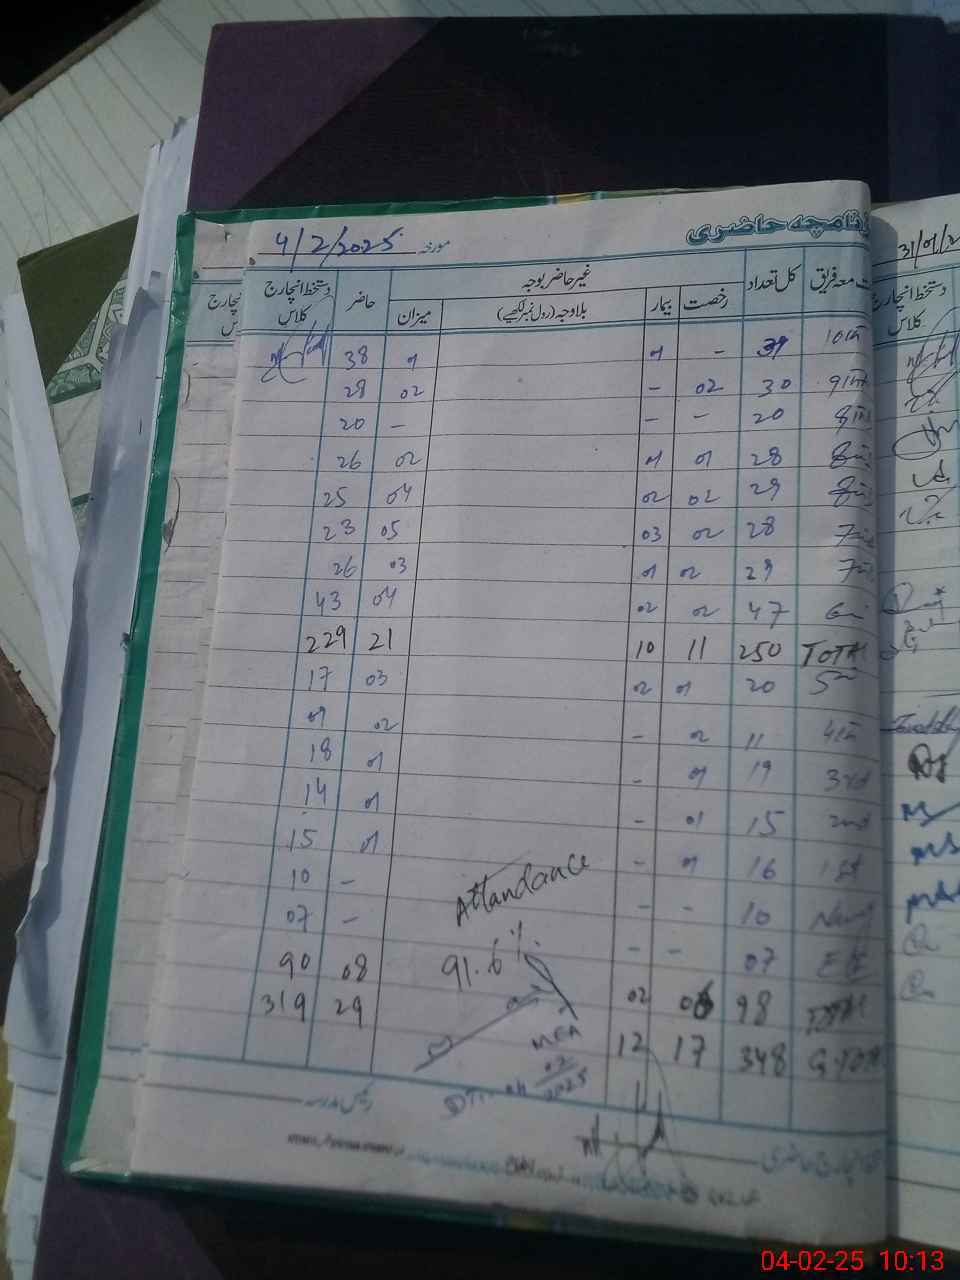 حاضری
مورخہ 4/2/2025
31/01/2
معہ فریق کل تعداد غیر حاضر بوجہ حاضر دستخط انچارج کلاس
رخصت بیمار بلاوجہ (رول نمبر لکھیے) میزان
دستخط انچارج کلاس
10th 39 - 01 01 38
9th 30 02 - 02 28
8th 20 - - - 20
8th 28 01 01 02 26
8th 29 02 02 04 25
7th 28 02 03 05 23
7th 29 02 01 03 26
6th 47 02 02 04 43
TOTAL 250 11 10 21 229
5th 20 01 02 03 17
4th 11 02 - 02 09
3rd 19 01 - 01 18
2nd 15 01 - 01 14
1st 16 01 - 01 15
10 - - - 10
ECE 07 - - - 07
TOTAL 98 06 02 08 90
G.TOTAL 348 17 12 29 319
Attandance
91.6%
MEA
02
2025
04-02-25 10:13